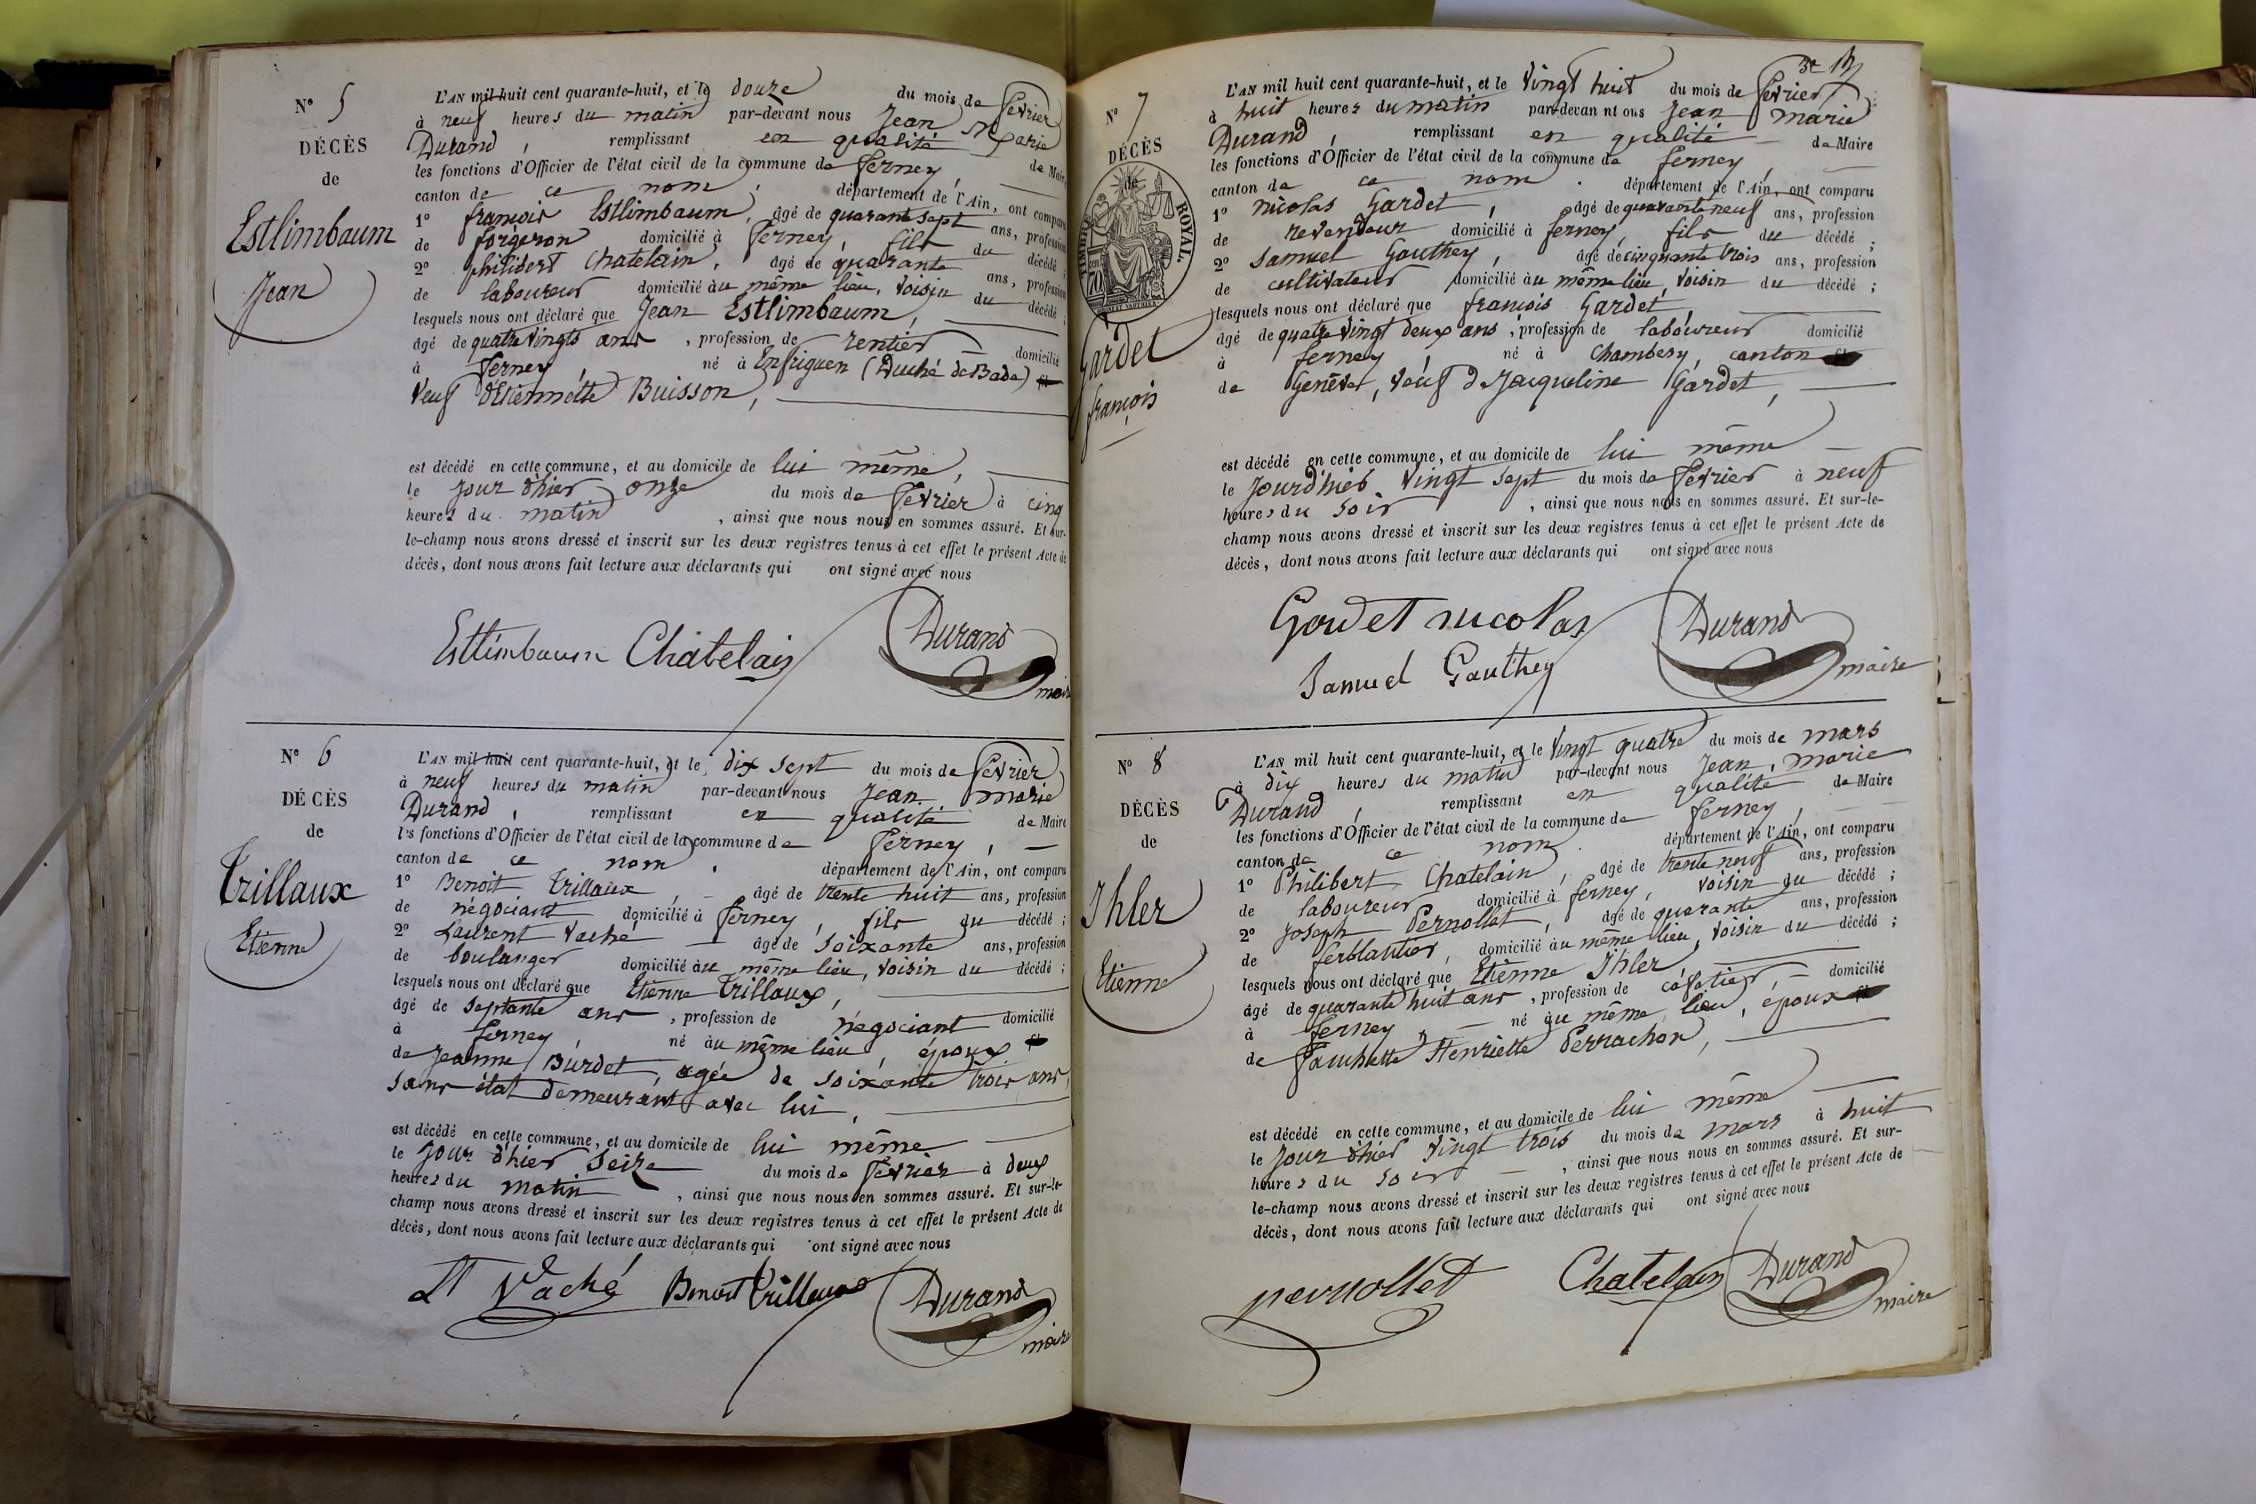 N° 5
DÉCÈS
de
Estlimbaum
Jean
L'AN mil huit cent quarante-huit, et le douze du mois de Fevrier
à neuf heures du matin par-devant nous Jean Marie
Durand, remplissant en qualité de Maire
les fonctions d'Officier de l'état civil de la commune de ferney,
canton de ce nom, département de l'Ain, ont comparu
1° françois Estlimbaum, âgé de quarante sept ans, profession
de forgeron domicilié à ferney, fils du décédé ;
2° philibert Chatelain, âgé de quarante ans, profession
de laboureur domicilié au même lieu, voisin du décédé ;
lesquels nous ont déclaré que Jean Estlimbaum,
âgé de quatre vingts ans, profession de rentier domicilié
à ferney, né à (Duché de Bade)
veuf d'Etiennette Buisson,
est décédé en cette commune, et au domicile de lui même,
le jour d'hier onze du mois de Fevrier à cinq
heures du matin, ainsi que nous nous en sommes assuré. Et sur-
le-champ nous avons dressé et inscrit sur les deux registres tenus à cet effet le présent Acte de
décès, dont nous avons fait lecture aux déclarants qui ont signé avec nous
Estlimbaum Chatelain Durand
maire
N° 6
DÉCÈS
de
Trillaux
Etienne
L'AN mil huit cent quarante-huit, et le dix sept du mois de Fevrier
à neuf heures du matin par-devant nous Jean Marie
Durand, remplissant en qualité de Maire
les fonctions d'Officier de l'état civil de la commune de Ferney,
canton de ce nom. département de l'Ain, ont comparu
1° Benoit Trillaux, âgé de trente huit ans, profession
de négociant domicilié à ferney, fils du décédé ;
2° Laurent Vaché âgé de soixante ans, profession
de boulanger domicilié au même lieu, voisin du décédé ;
lesquels nous ont déclaré que Etienne Trillaux,
âgé de septante ans, profession de négociant domicilié
à ferney, né au même lieu, époux
de Jeanne Burdet, agée de soixante trois ans,
sans état demeurant avec lui,
est décédé en cette commune, et au domicile de lui même
le jour d'hier seize du mois de Fevrier à deux
heures du matin, ainsi que nous nous en sommes assuré. Et sur-le-
champ nous avons dressé et inscrit sur les deux registres tenus à cet effet le présent Acte de
décès, dont nous avons fait lecture aux déclarants qui ont signé avec nous
Vaché Benoit Trillaux Durand
maire
N° 7
DÉCÈS
de
TIMBRE ROYAL.
Gardet
françois
L'AN mil huit cent quarante-huit, et le vingt huit du mois de Fevrier
à huit heures du matin par-devan nt ous Jean Marie
Durand, remplissant en qualité de Maire
les fonctions d'Officier de l'état civil de la commune de ferney
canton de ce nom. département de l'Ain, ont comparu
1° nicolas Gardet, âgé de quarante neuf ans, profession
de revendeur domicilié à ferney, fils du décédé ;
2° Samuel Gauthey, âgé de cinquante trois ans, profession
de cultivateur domicilié au même lieu, voisin du décédé ;
lesquels nous ont déclaré que françois Gardet
âgé de quatre vingt deux ans, profession de laboureur domicilié
à ferney né à Chambesy, canton
de Genève, veuf de Jacqueline Gardet,
est décédé en cette commune, et au domicile de lui même
le jourd'hier vingt sept du mois de Fevrier à neuf
heures du soir, ainsi que nous nous en sommes assuré. Et sur-le-
champ nous avons dressé et inscrit sur les deux registres tenus à cet effet le présent Acte de
décès, dont nous avons fait lecture aux déclarants qui ont signé avec nous
Gardet nicolas Durand
Samuel Gauthey maire
N° 8
DÉCÈS
de
Ihler
Etienne
L'AN mil huit cent quarante-huit, et le vingt quatre du mois de mars
à dix heures du matin par-devant nous Jean, Marie
Durand, remplissant en qualité de Maire
les fonctions d'Officier de l'état civil de la commune de ferney,
canton de ce nom. département de l'Ain, ont comparu
1° Philibert Chatelain, âgé de trente neuf ans, profession
de laboureur domicilié à ferney, voisin du décédé ;
2° Joseph Pernollet, âgé de quarante ans, profession
de ferblantier, domicilié au même lieu, voisin du décédé ;
lesquels nous ont déclaré que Etienne Ihler,
âgé de quarante huit ans, profession de domicilié
à ferney, né au même lieu, époux
de Henriette Perrachon,
est décédé en cette commune, et au domicile de lui même
le jour d'hier vingt trois du mois de mars à huit
heures du soir, ainsi que nous nous en sommes assuré. Et sur-
le-champ nous avons dressé et inscrit sur les deux registres tenus à cet effet le présent Acte de
décès, dont nous avons fait lecture aux déclarants qui ont signé avec nous
pernollet Chatelain Durand
maire